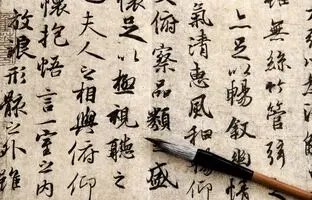 無絲竹管弦之
足以暢叙幽情
氣清惠風和暢仰
俯察品類
盛
懷足以極視聽之
夫人之相與俯仰
懷抱悟言一室之内
放浪形骸之外雖